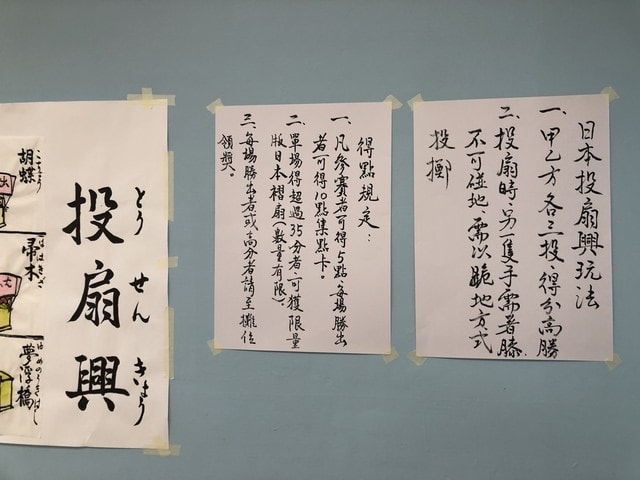 日本投扇興玩法
一、甲乙方各三投、得分高勝
二、投扇時、另隻手需著膝、
不可碰地、需以跪地方式
投擲
得點規定：
一、凡參賽者可得5點、每場勝出
者可得10點集點卡。
二、單場得超過35分者、可獲限量
版日本摺扇（數量有限）。
三、每場勝出者或高分者請至攤位
領獎。
投扇興
とうせんきょう
胡蝶
こちょう
帚木
ははきぎ
夢浮橋
ゆめのうきはし